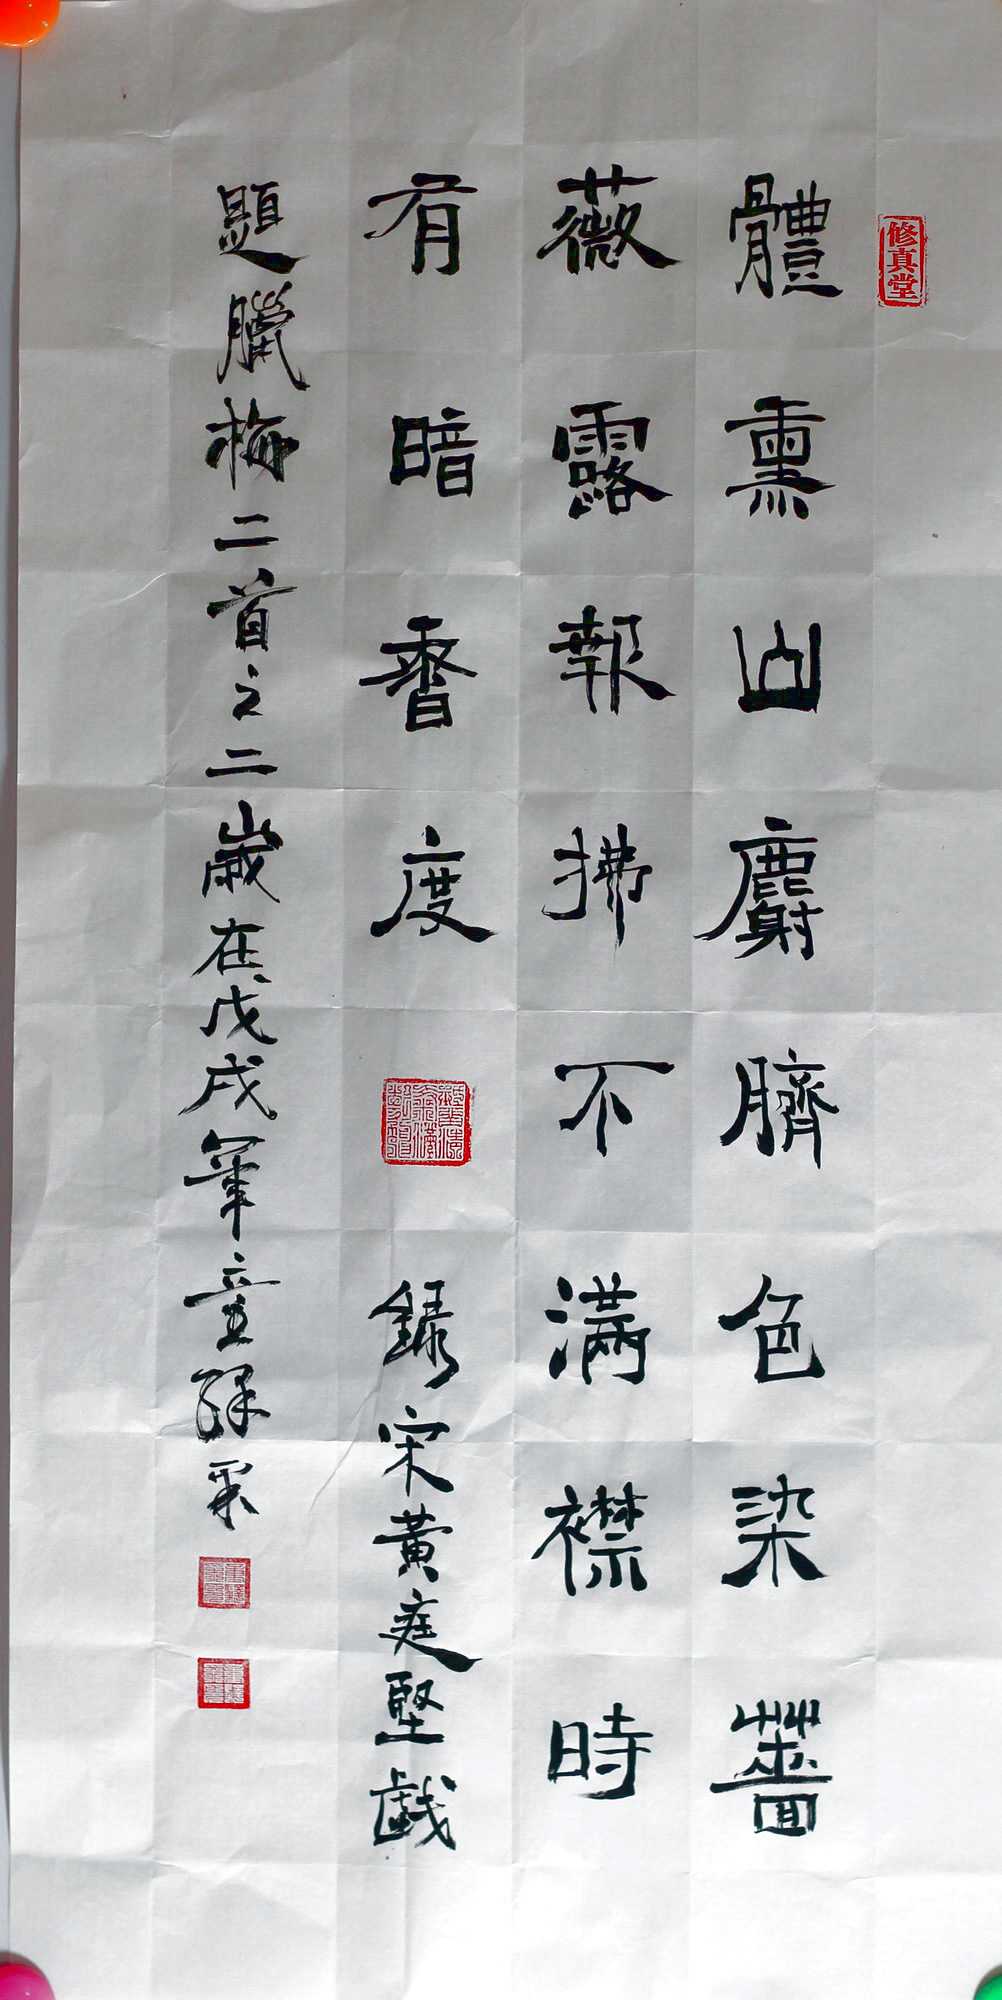 修真堂
體熏山麝臍色染薔
薇露報拂不滿襟時
有暗香度
錄宋黃庭堅戲
題臘梅二首之二歲在戊戌年童